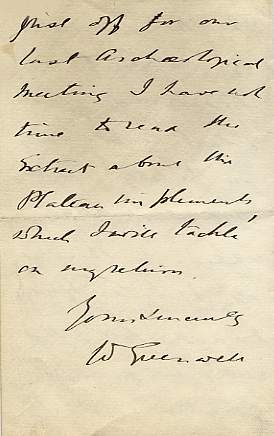 just off for our
last Archæological
Meeting I have not
time to read the
extract about the
Plateau implements
which I will tackle
on my return.
Yours Sincerely
W Greenwell